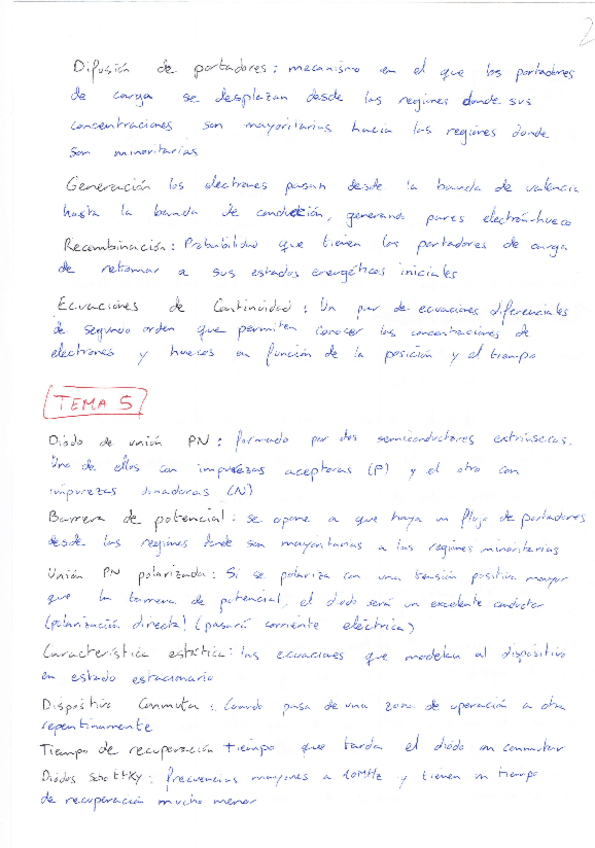 2
Difusión de portadores: mecanismo en el que los portadores
de carga se desplazan desde las regiones donde sus
concentraciones son mayoritarias hacia las regiones donde
son minoritarias
Generación los electrones pasan desde la banda de valencia
hasta la banda de conducción, generando pares electrón-hueco
Recombinación: Probabilidad que tienen los portadores de carga
de retornar a sus estados energéticos iniciales
Ecuaciones de Continuidad: Un par de ecuaciones diferenciales
de segundo orden que permiten conocer las concentraciones de
electrones y huecos en función de la posición y el tiempo
TEMA 5
Diódo de unión PN: formado por dos semiconductores extrínsecos.
Uno de ellos con impurezas aceptoras (P) y el otro con
impurezas donadoras (N)
Barrera de potencial: se opone a que haya un flujo de portadores
desde las regiones donde son mayoritarias a las regiones minoritarias
Unión PN polarizada: Si se polariza con una tensión positiva mayor
que la barrera de potencial, el diodo será un excelente conductor
(polarización directa) (pasará corriente eléctrica)
Característica estática: las ecuaciones que modelan al dispositivo
en estado estacionario
Dispositivo Conmuta: Cuando pasa de una zona de operación a otra
repentinamente
Tiempo de recuperación tiempo que tarda el diódo en conmutar
Diódos Schottky: frecuencias mayores a 10MHz y tienen un tiempo
de recuperación mucho menor